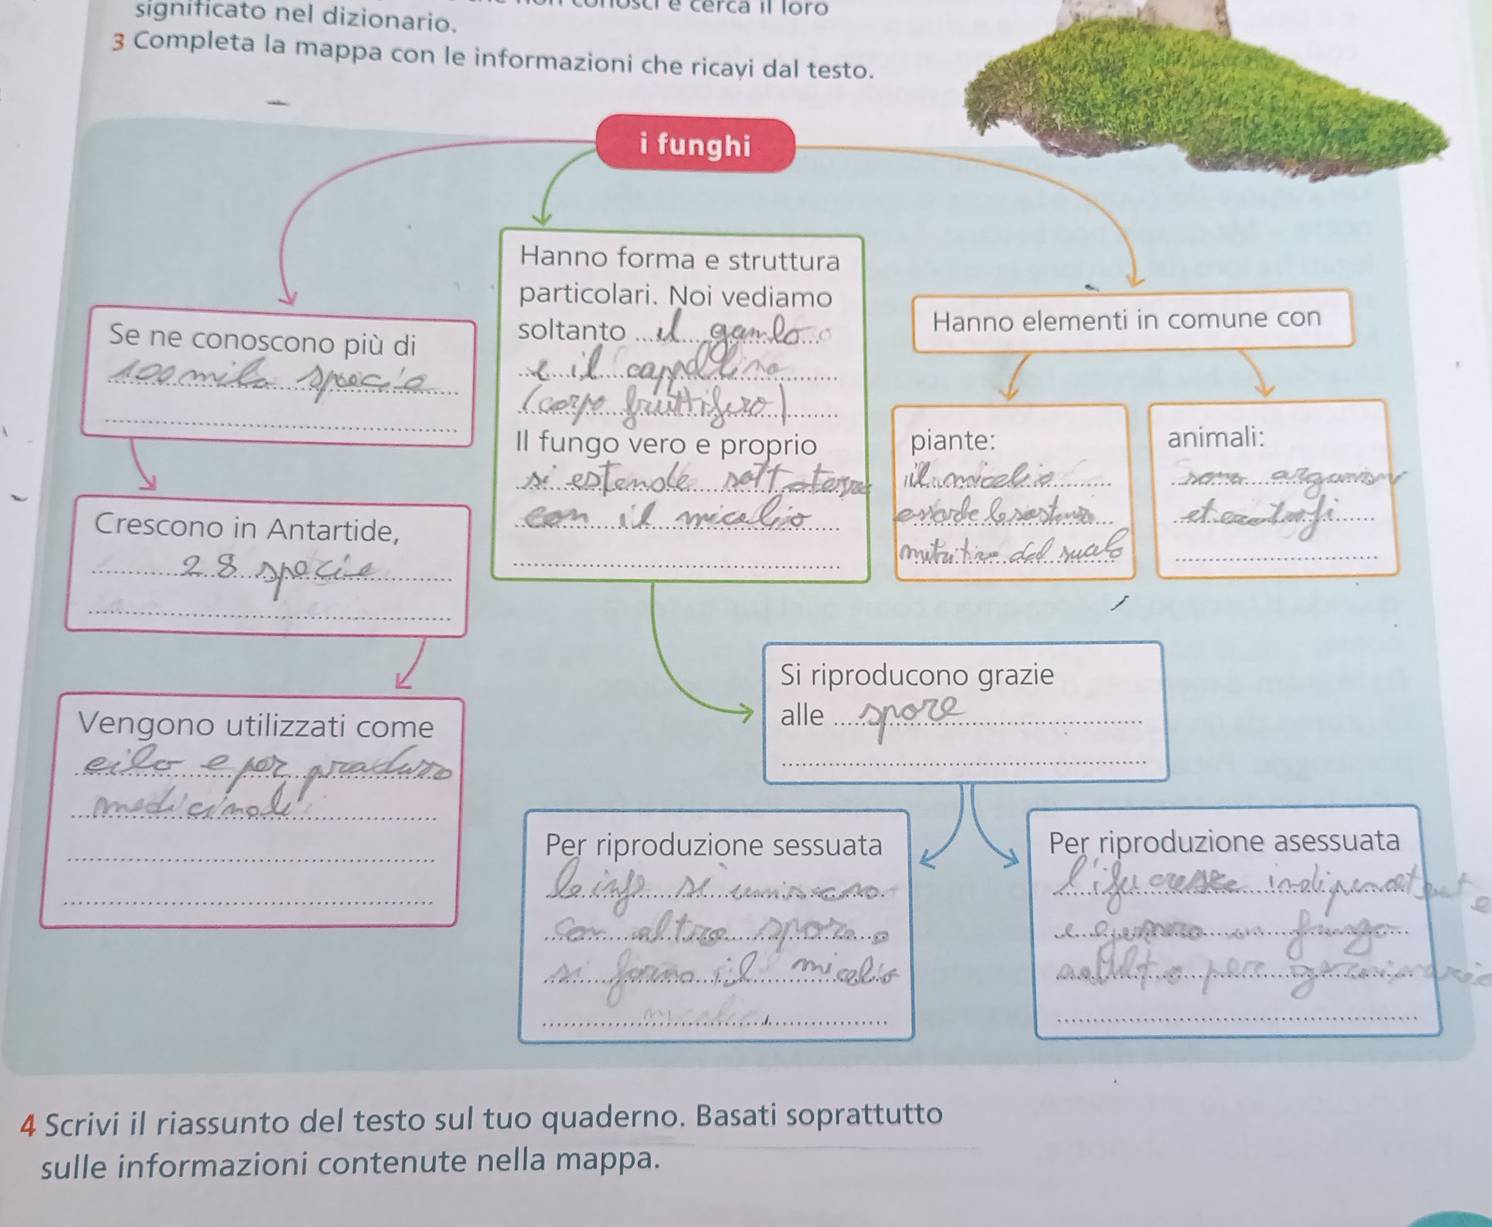 conosci e cerca il loro
significato nel dizionario.
3 Completa la mappa con le informazioni che ricavi dal testo.
i funghi
Se ne conoscono più di
100 mila specie
Crescono in Antartide,
28 specie
Vengono utilizzati come
e per
medicinali
Hanno forma e struttura
particolari. Noi vediamo
soltanto il gambo
e il cappellino
(corpo fruttifero)
Il fungo vero e proprio
si estende sottoterra
con il micelio
Hanno elementi in comune con
piante:
il micelio
del suolo
animali:
sono organismi
eterotrofi
Si riproducono grazie
alle spore
Per riproduzione sessuata
le ife si uniscono
con altre spore e
si forma il micelio
Per riproduzione asessuata
l'ifa cresce
e un fungo
adulto per
4 Scrivi il riassunto del testo sul tuo quaderno. Basati soprattutto
sulle informazioni contenute nella mappa.